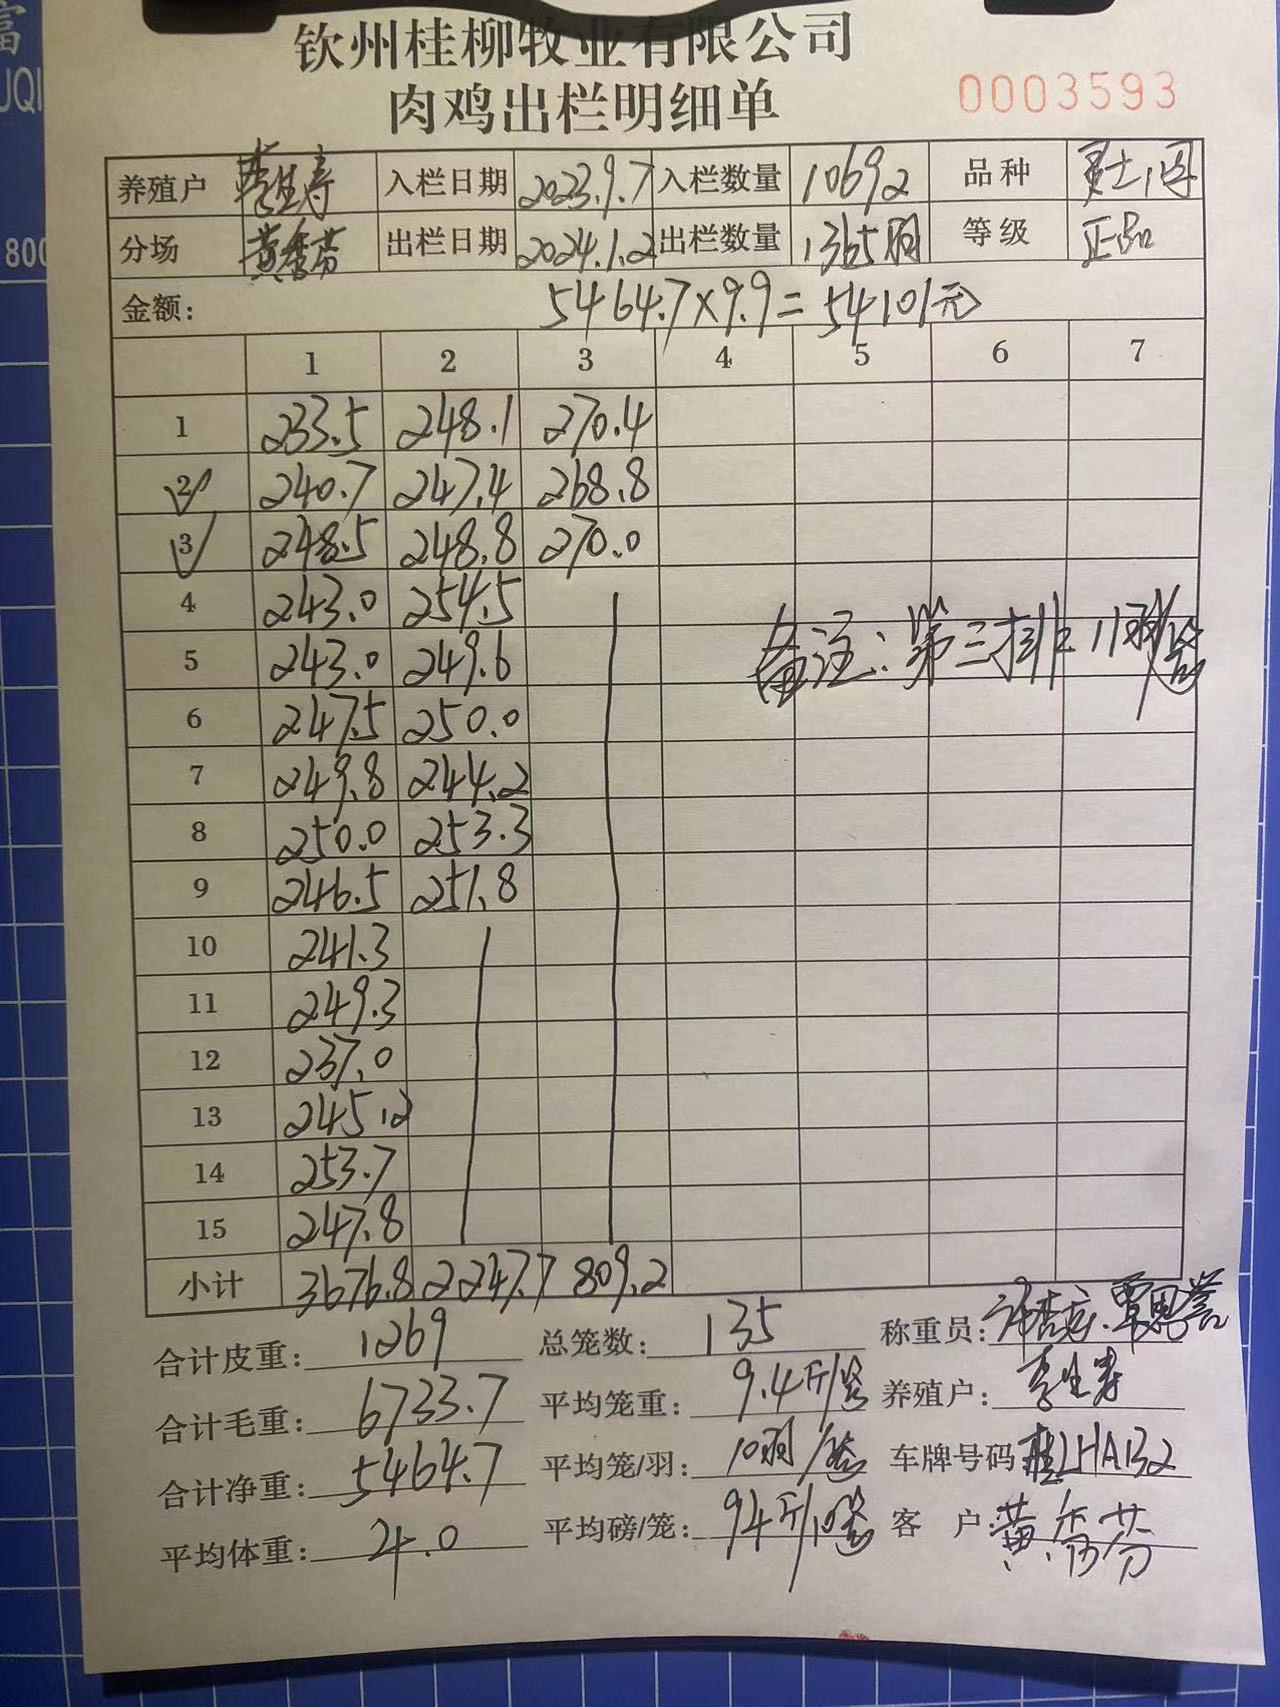 钦州桂柳牧业有限公司
肉鸡出栏明细单
0003593
养殖户 李生寿 入栏日期 2023.9.7 入栏数量 10692 品种
分场 黄秀芬 出栏日期 2024.1.2 出栏数量 1365羽 等级 正品
金额: 5464.7×9.9=54101元
1 2 3 4 5 6 7
1 233.5 248.1 270.4
2 240.7 247.4 268.8
3 248.5 248.8 270.0
4 243.0 254.5
5 243.0 249.6
备注:第三排11羽/笼
6 247.5 250.0
7 249.8 244.2
8 250.0 253.3
9 246.5 251.8
10 241.3
11 249.3
12 237.0
13 245.2
14 253.7
15 247.8
小计 3676.8 2247.7 809.2
合计皮重: 1269 总笼数: 135 称重员:
合计毛重: 6733.7 平均笼重: 9.4斤/笼 养殖户: 李生寿
合计净重: 5464.7 平均笼/羽: 10羽/笼 车牌号码 桂LHAB2
平均体重: 4.0 平均磅/笼: 94斤/10笼 客 户: 黄秀芬
800